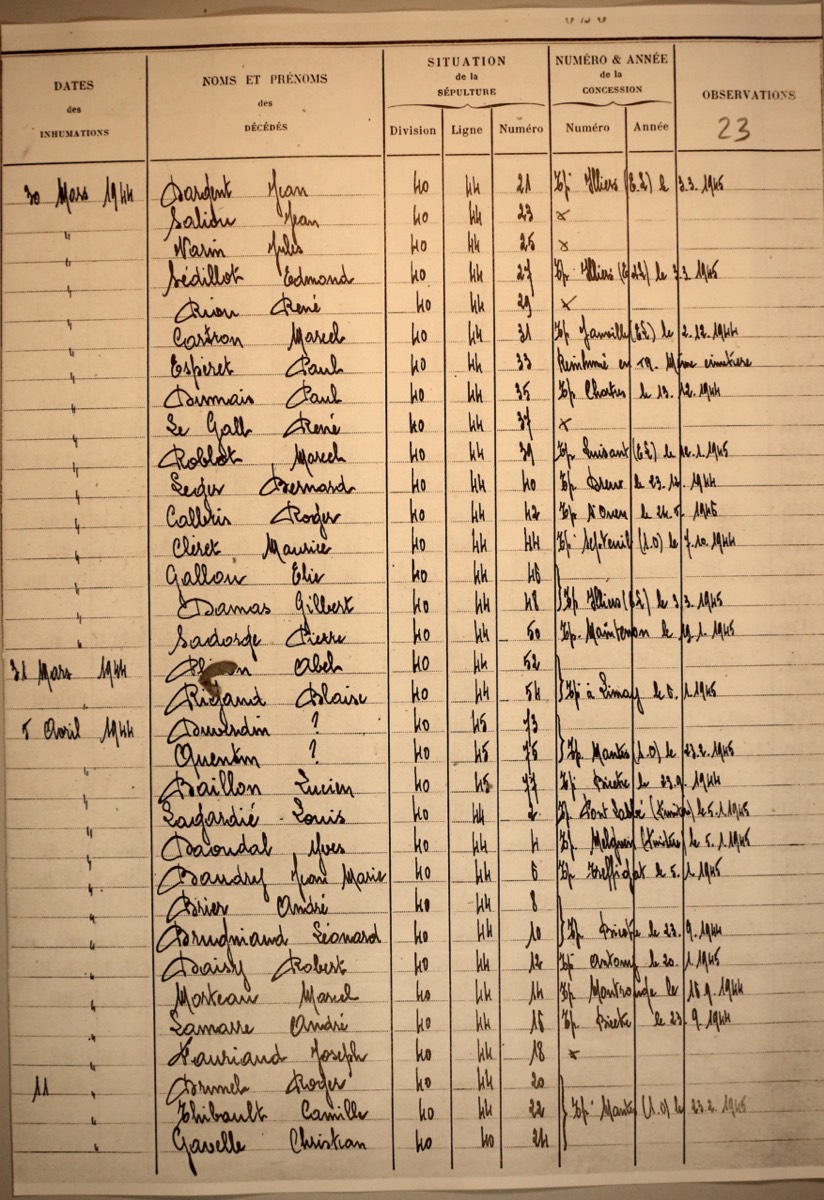 DATES des INHUMATIONS NOMS ET PRÉNOMS des DÉCÉDÉS SITUATION de la SÉPULTURE NUMÉRO & ANNÉE de la CONCESSION OBSERVATIONS
Division Ligne Numéro Numéro Année 23
30 Mars 1944 Dargent Jean 40 44 21 Tp Illiers (E.L) le 3.3.1945
Salidu Jean 40 44 23 x
" Marin Jules 40 44 25 x
" Sédillot Edmond 40 44 27 Tp Illiers (E.L) le 3.3.1945
" Riou René 40 44 29 x
" Castron Marcel 40 44 31 Tp Janville (E.L) le 2.12.1944
" Esperet Paul 40 44 33 Réinhumé en même cimetière
" Dumais Paul 40 44 35 Tp Chatres le 13.12.1944
" Le Gall René 40 44 37 x
" Roblot Marcel 40 44 39 Tp Luisant (E.L) le 12.1.1945
" Leger Bernard 40 44 40 Tp Dreux le 23.12.1944
" Calleris Roger 40 44 42 Tp St Ouen le 24.5.1945
" Cléret Maurice 40 44 44 Tp Septeuil (S.O) le 7.10.1944
" Gallou Elie 40 44 46
" Damas Gilbert 40 44 48 Tp Illiers (E.L) le 3.3.1945
" Sadorge Pierre 40 44 50 Tp. Maintenon le 19.1.1945
31 Mars 1944 Abel 40 44 52
" Rigaud Blaise 40 44 54 Tp à Limay le 5.1.1945
5 Avril 1944 ? 40 45 73
Quentin ? 40 45 75 Tp Mantes (S.O) le 23.2.1945
" Baillon Lucien 40 45 77 Tp Bicetre le 23.9.1944
" Lagardié Louis 40 44 2 Tp Pont Labbé (Finistère) le 5.1.1945
" Daoudal Yves 40 44 4 Tp. (Finistère) le 5.1.1945
" Baudry Jean Marie 40 44 6 Tp Treffiagat le 5.1.1945
" Brier André 40 44 8
" Brugniaud Léonard 40 44 10 Tp Bicetre le 23.9.1944
" Daisy Robert 40 44 12 Tp Antony le 20.1.1945
" Morteau Marcel 40 44 14 Tp Montrouge le 18.9.1944
" Lamarre André 40 44 16 Tp Bicetre le 23.9.1944
" Lauriaud Joseph 40 44 18 x
11 " Brunel Roger 40 44 20
" Thibault Camille 40 44 22 Tp Mantes (S.O) le 23.2.1945
" Gavelle Christian 40 40 24